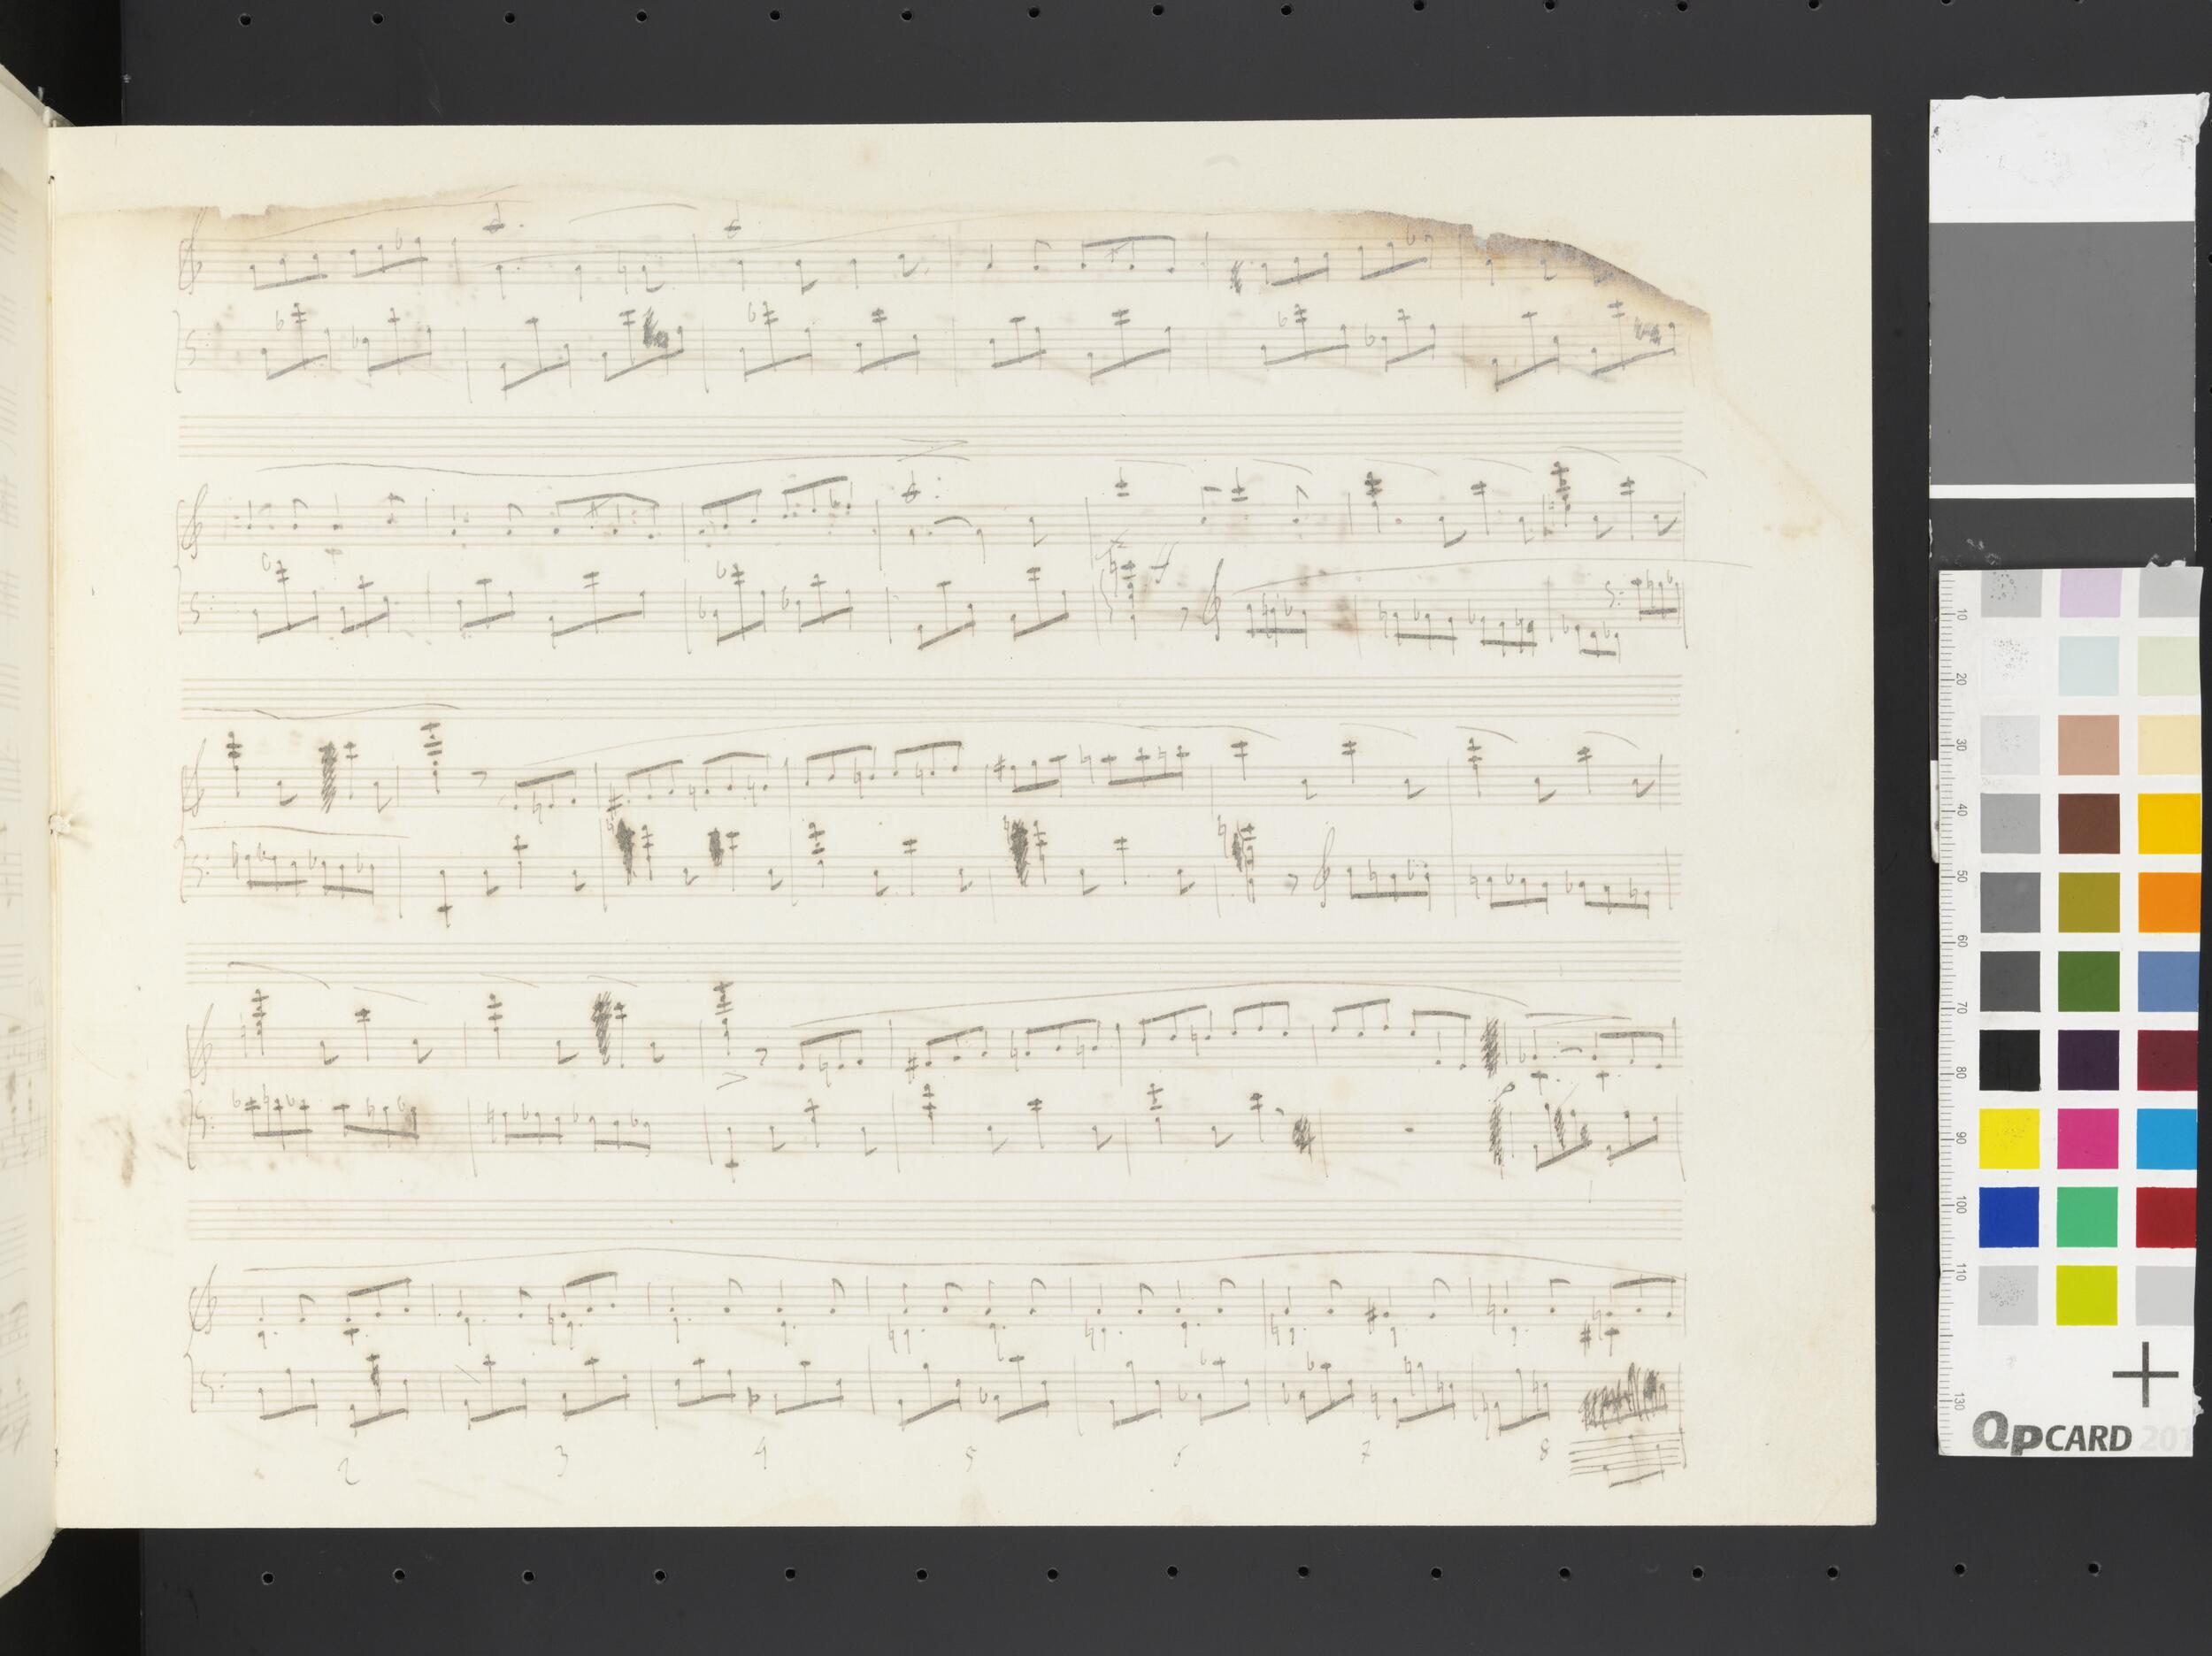 ff
2 3 4 5 6 7 8
10
20
30
40
50
60
70
80
90
100
110
130
QPCARD 201